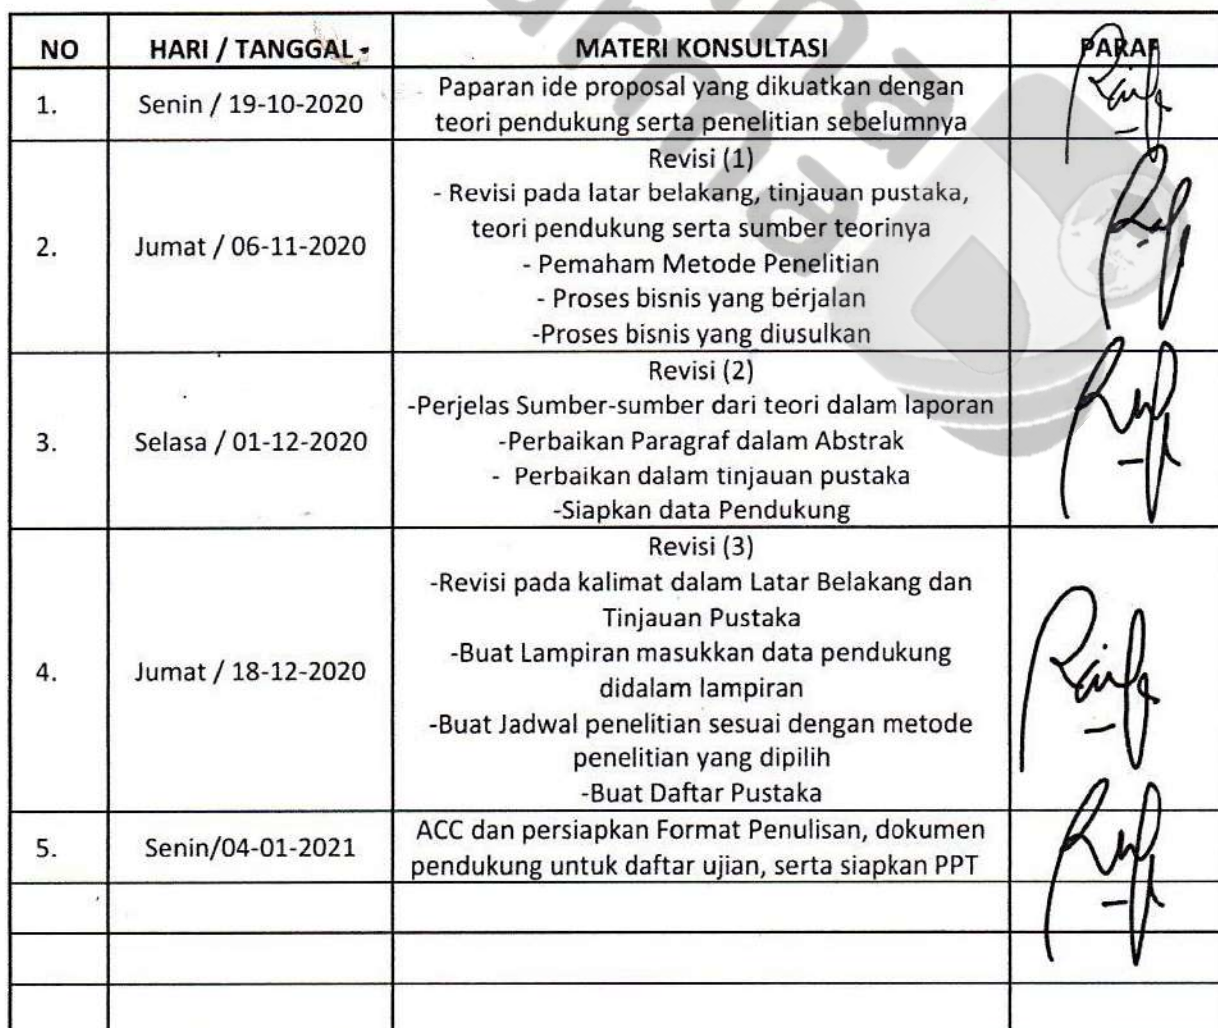 NO HARI / TANGGAL MATERI KONSULTASI PARAF
1. Senin / 19-10-2020 Paparan ide proposal yang dikuatkan dengan
teori pendukung serta penelitian sebelumnya
Revisi (1)
- Revisi pada latar belakang, tinjauan pustaka,
teori pendukung serta sumber teorinya
2. Jumat / 06-11-2020
- Pemaham Metode Penelitian
- Proses bisnis yang berjalan
-Proses bisnis yang diusulkan
Revisi (2)
-Perjelas Sumber-sumber dari teori dalam laporan
3. Selasa / 01-12-2020 -Perbaikan Paragraf dalam Abstrak
- Perbaikan dalam tinjauan pustaka
-Siapkan data Pendukung
Revisi (3)
-Revisi pada kalimat dalam Latar Belakang dan
Tinjauan Pustaka
-Buat Lampiran masukkan data pendukung
4. Jumat / 18-12-2020
didalam lampiran
-Buat Jadwal penelitian sesuai dengan metode
penelitian yang dipilih
-Buat Daftar Pustaka
5. Senin/04-01-2021 ACC dan persiapkan Format Penulisan, dokumen
pendukung untuk daftar ujian, serta siapkan PPT